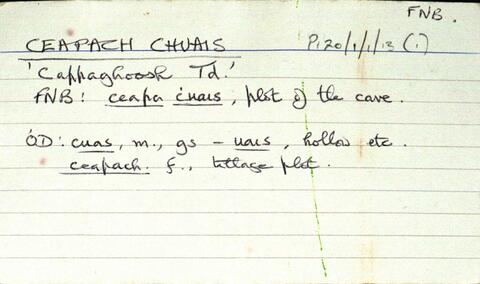 FNB.
CEAPACH CHUAIS P120/1/1/13 (1)
'Cappaghoosh Td.'
FNB: ceapa ċuais, plot of the cave.
ÓD: cuas, m., gs -uais, hollow etc
ceapach. f., tillage plot.